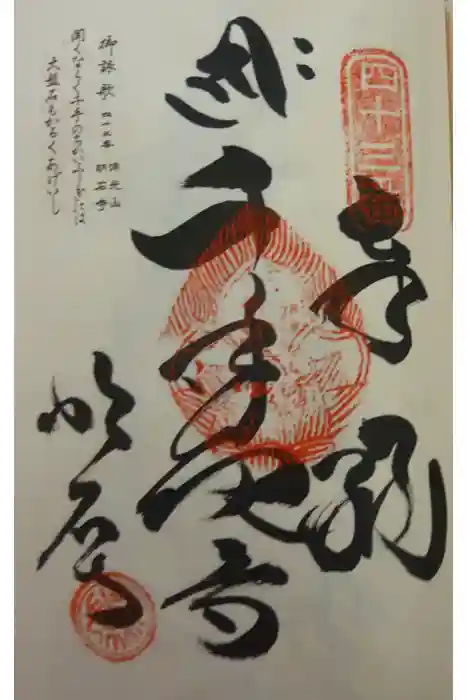 四十三番
奉納
千手観音
御詠歌 四十三番 源光山 明石寺
聞くならく千手のちかいふしぎには
大盤石もかろくあげいし
明石寺